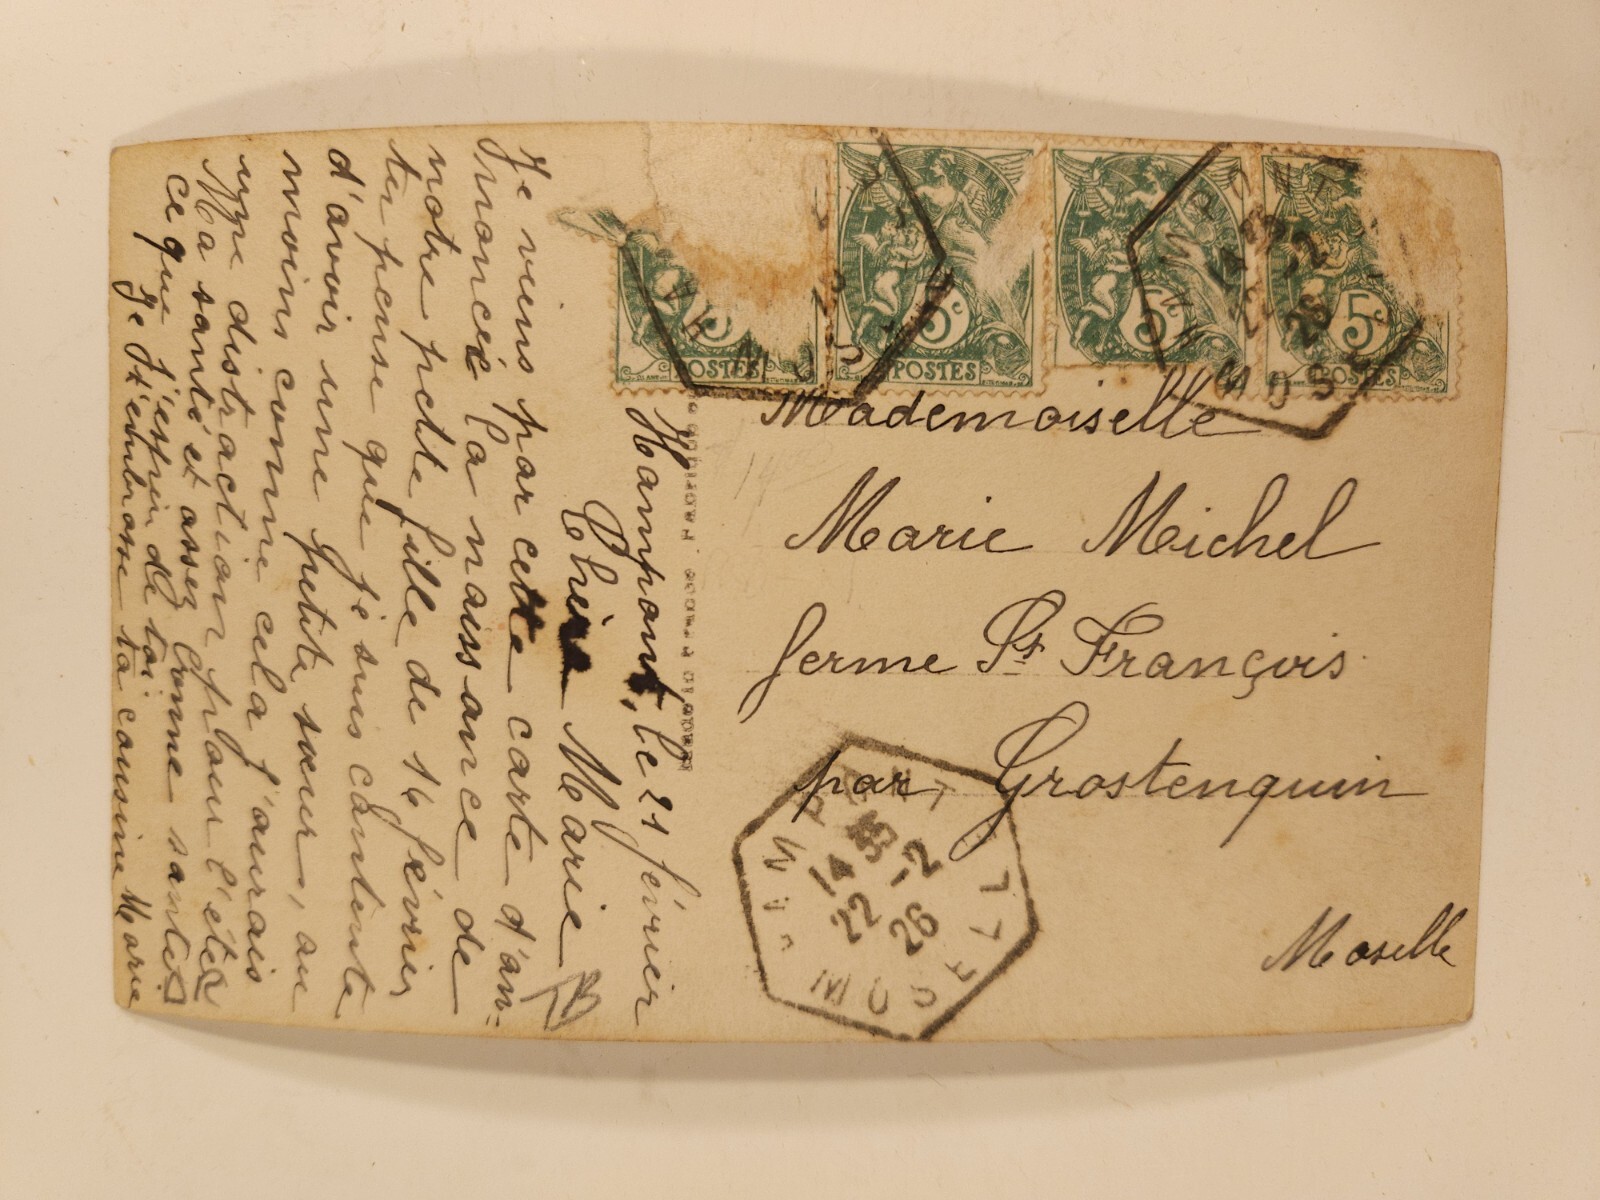 Hampont, le 21 février
Chère Marie
Je viens par cette carte d'an=
noncée la naissance de
notre petite fille de 14 février
tu pense que je suis contente
d'avoir une petite sœur, au
moins comme cela j'aurais
une distraction pour l'été
Ma santé et assez bonne
ce que j'espère de toi.
Je t'embrasse ta cousine Marie
5c
POSTES
5c
POSTES
5c
5c
POSTES
Mademoiselle
Marie Michel
ferme St François
par Grostenquin
Moselle
14 35
22 -2
26